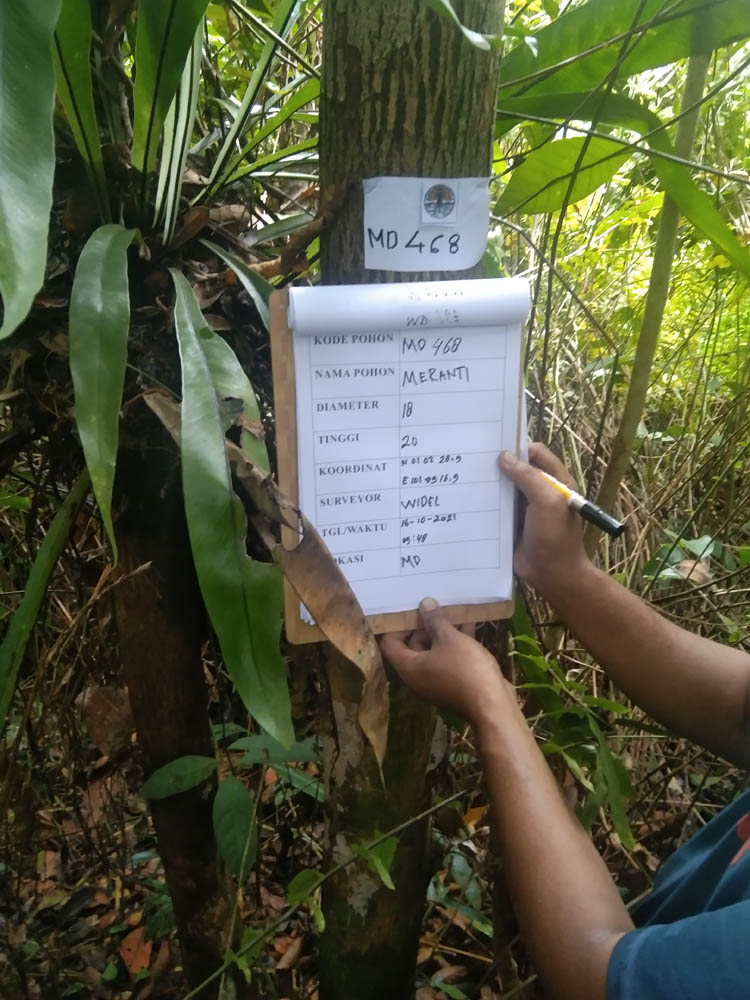 MD 468
WD
KODE POHON MD 468
NAMA POHON MERANTI
DIAMETER 18
TINGGI 20
KOORDINAT N 01 02 20.9
E 101 49 16.9
SURVEYOR WIDEL
TGL/WAKTU 16-10-2021
09:48
OKASI MD